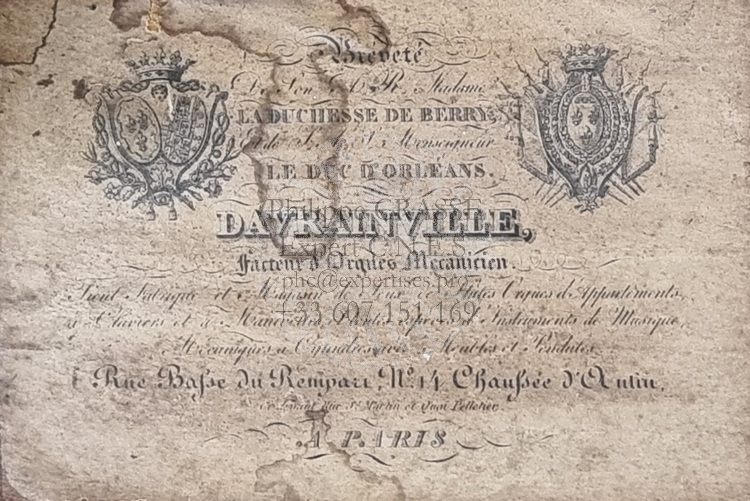 Breveté
De Son A. R. Madame
LA DUCHESSE DE BERRY,
Et de S. A. S. Monseigneur
LE DUC D'ORLÉANS.
Philippe CRASSE
DAVRAINVILLE,
Expert C.N.E.S
Facteur d'Orgues Mécanicien.
phc@expertises.pro
Tient Fabrique et Magasin de Jeux de Flûtes Orgues d'Appartements,
+33 607 151 169
à Claviers et à Manivelles, et Instruments de Musique,
Mécaniques à Cylindres avec Meubles et Pendules.
Rue Basse du Rempart, No. 14 Chaussée d'Antin,
Ce devant Rue St. Martin et Quai Pelletier
A PARIS